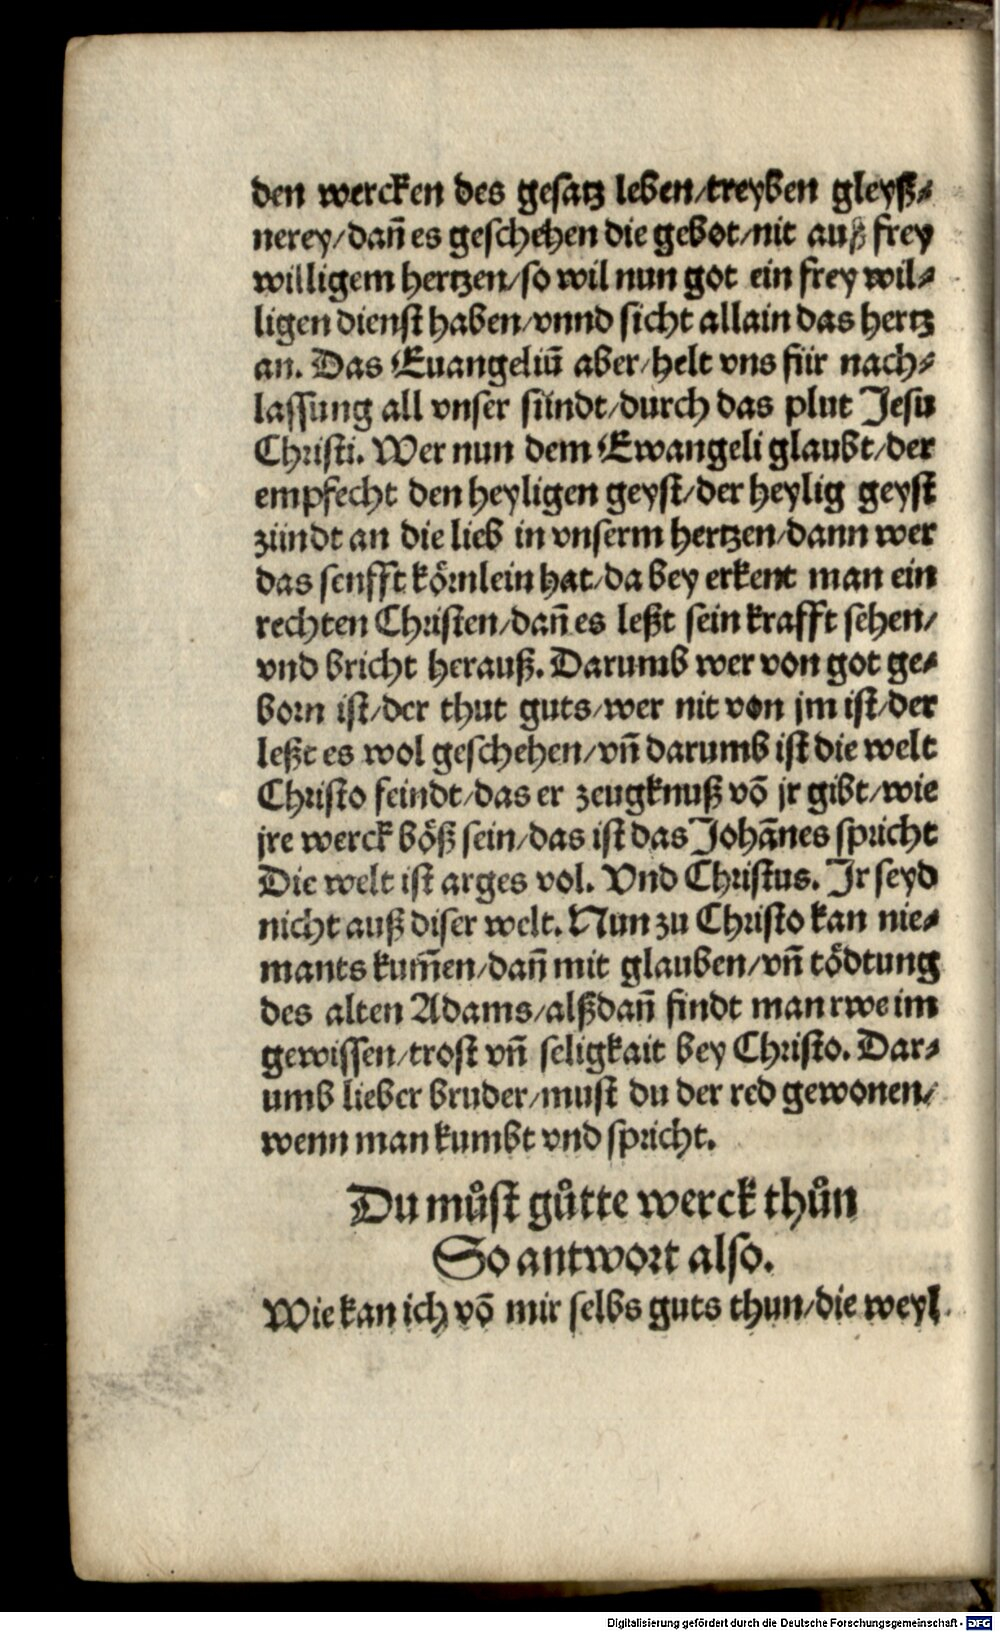 den wercken des gesatz leben/treyben gleyß⸗
nerey/dañ es geschehen die gebot/nit auß frey
willigem hertzen/so wil nun got ein frey wil⸗
ligen dienst haben/vnnd sicht allain das hertz
an. Das Euangeliũ aber/helt vns für nach⸗
lassung all vnser sündt/durch das plut Jesu
Christi. Wer nun dem Ewangeli glaubt/der
empfecht den heyligen geyst/der heylig geyst
zündt an die lieb in vnserm hertzen/dann wer
das senfft körnlein hat/da bey erkent man ein
rechten Christen/dañ es leßt sein krafft sehen/
vnd bricht herauß. Darumb wer von got ge⸗
born ist/der thut guts/wer nit von jm ist/der
leßt es wol geschehen/vñ darumb ist die welt
Christo feindt/das er zeugknuß võ jr gibt/wie
jre werck böß sein/das ist das Johãnes spricht
Die welt ist arges vol. Vnd Christus. Jr seyd
nicht auß diser welt. Nun zu Christo kan nie⸗
mants kum̃en/dañ mit glauben/vñ tödtung
des alten Adams/alßdañ findt man rwe im
gewissen/trost vñ seligkait bey Christo. Dar⸗
umb lieber bruder/must du der red gewonen/
wenn man kumbt vnd spricht.
Du můst gůtte werck thůn
So antwort also.
Wie kan ich võ mir selbs guts thun/die weyl
Digitalisierung gefördert durch die Deutsche Forschungsgemeinschaft - DFG